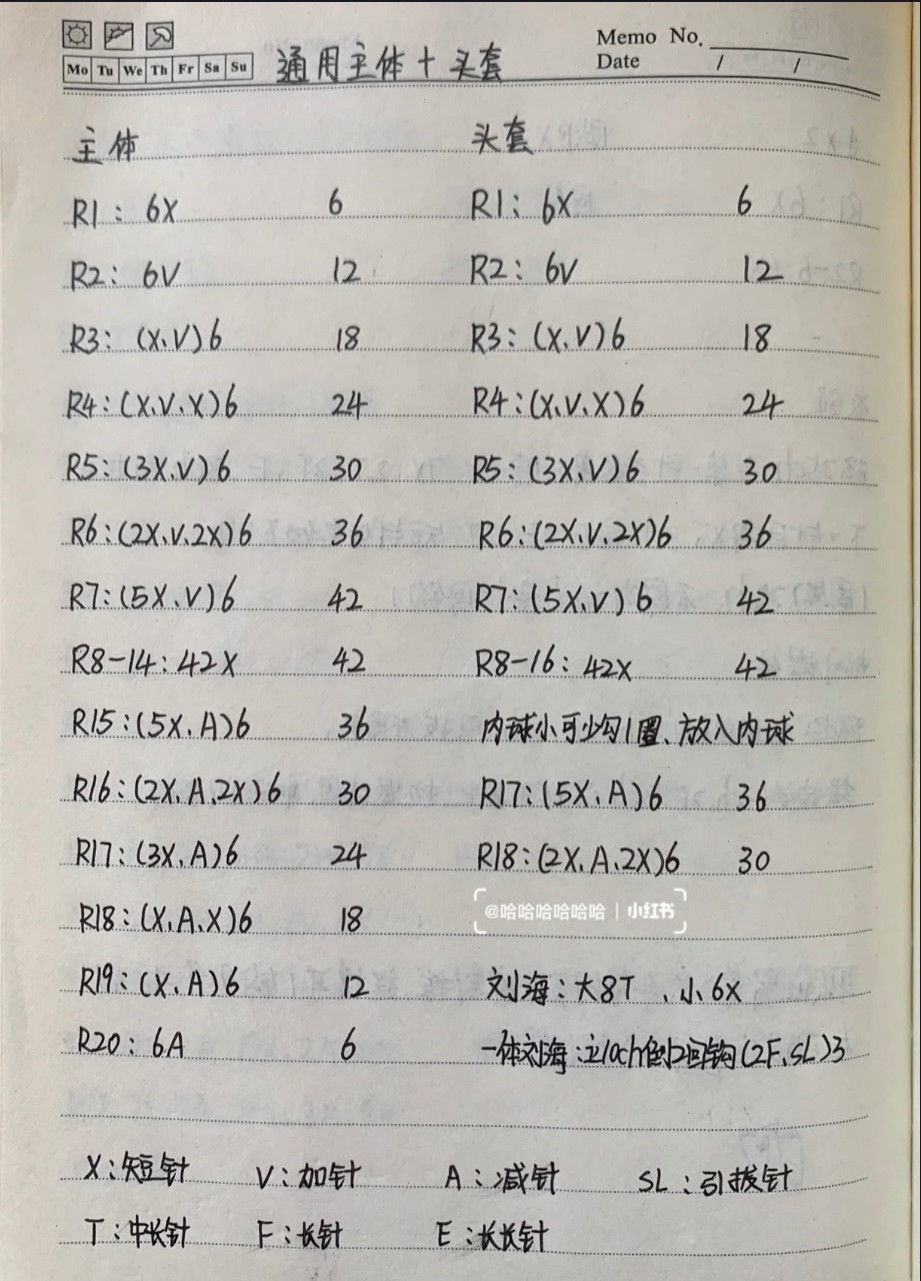 Memo No.
Mo Tu We Th Fr Sa Su
通用主体+头套
Date / /
主体
R1: 6X 6
R2: 6V 12
R3: (X.V)6 18
R4:(X.V.X)6 24
R5:(3X.V)6 30
R6:(2X.V.2X)6 36
R7:(5X.V)6 42
R8-14:42X 42
R15:(5X.A)6 36
R16:(2X.A.2X)6 30
R17:(3X.A)6 24
R18:(X.A.X)6 18
R19:(X.A)6 12
R20:6A 6
头套
R1: 6X 6
R2: 6V 12
R3:(X.V)6 18
R4:(X.V.X)6 24
R5:(3X.V)6 30
R6:(2X.V.2X)6 36
R7:(5X.V)6 42
R8-16: 42X 42
内球小可少勾1圈、放入内球
R17:(5X.A)6 36
R18:(2X.A.2X)6 30
@哈哈哈哈哈哈 | 小红书
刘海:大8T、小6X
一体刘海:立10ch倒2回钩(2F.SL)3
X:短针 V:加针 A:减针 SL:引拔针
T:中长针 F:长针 E:长长针